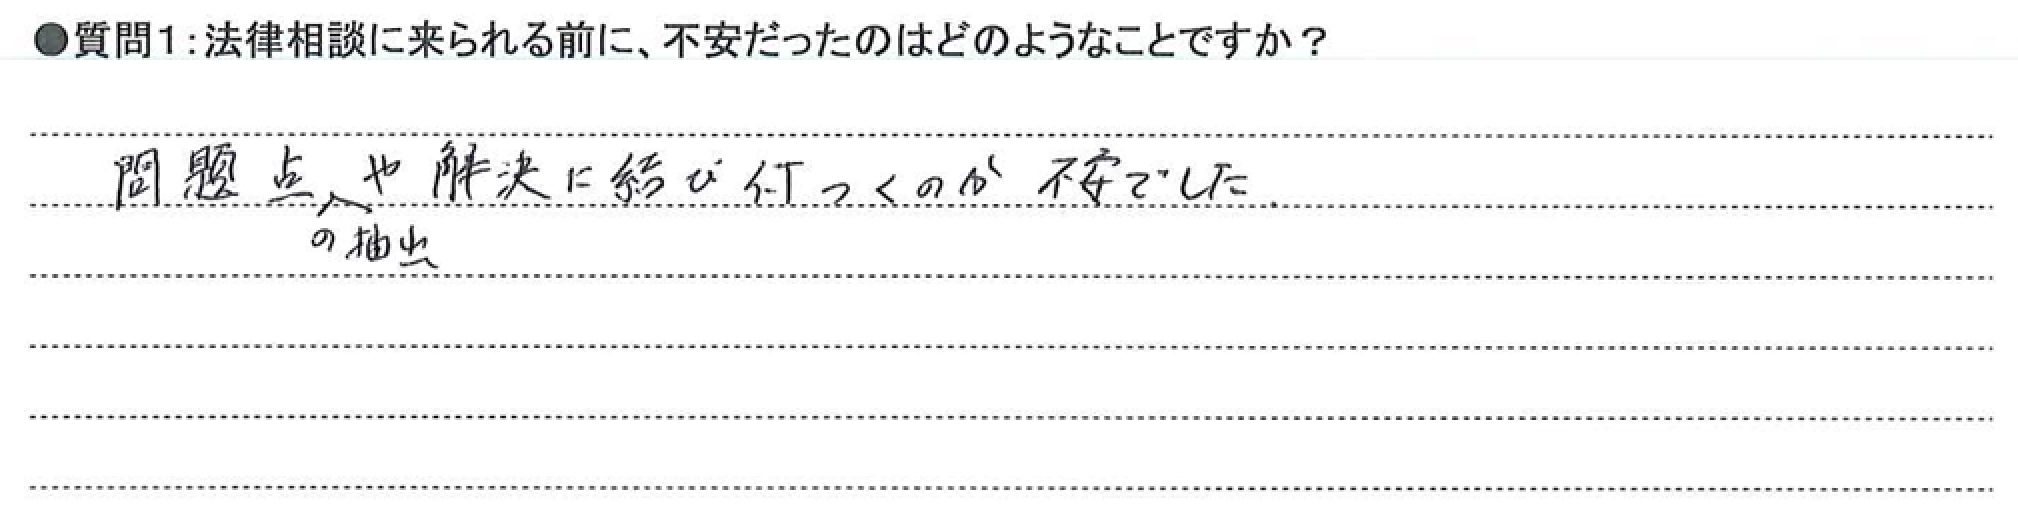 ●質問1:法律相談に来られる前に、不安だったのはどのようなことですか?
問題点や解決に結び付つくのが不安でした.
の抽出